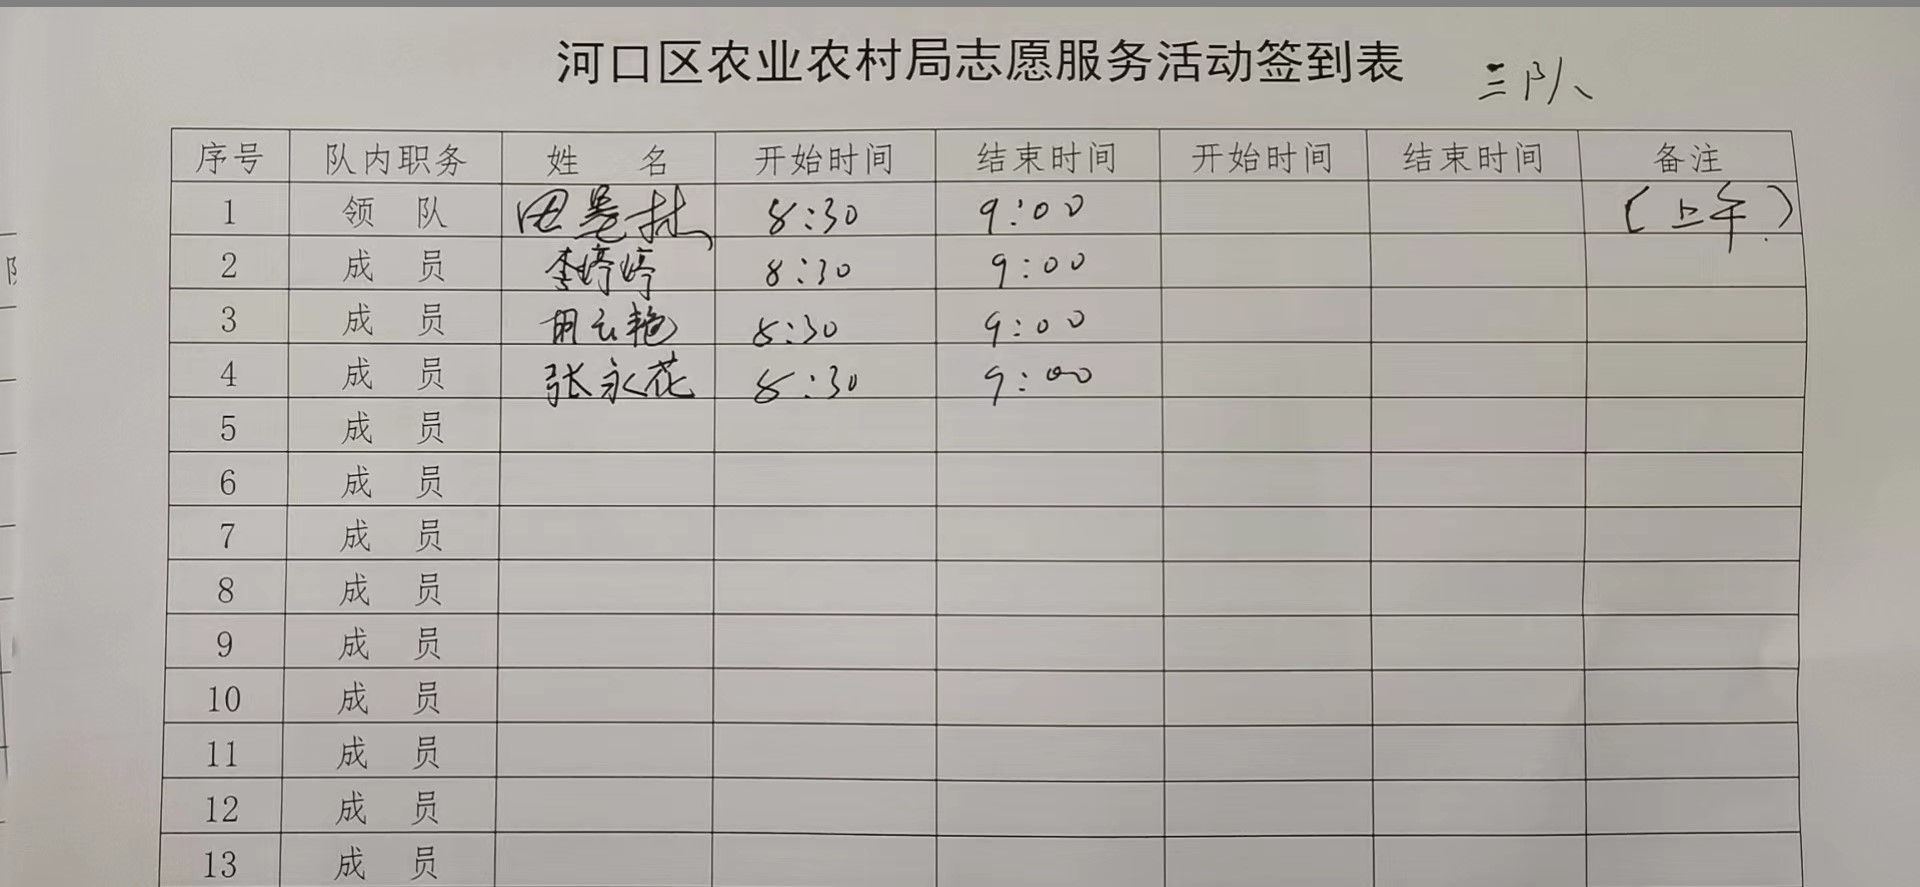 河口区农业农村局志愿服务活动签到表 三队
序号 队内职务 姓 名 开始时间 结束时间 开始时间 结束时间 备注
1 领 队 8:30 9:00 (上午)
2 成 员 李婷婷 8:30 9:00
3 成 员 胡云艳 8:30 9:00
4 成 员 张永花 8:30 9:00
5 成 员
6 成 员
7 成 员
8 成 员
9 成 员
10 成 员
11 成 员
12 成 员
13 成 员